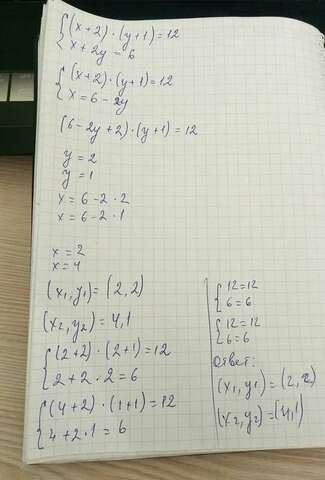 {(x+2)·(y+1)=12
{x+2y=6
{(x+2)·(y+1)=12
{x=6-2y
(6-2y+2)·(y+1)=12
y=2
y=1
x=6-2·2
x=6-2·1
x=2
x=4
(x₁,y₁)=(2,2)
(x₂,y₂)=4,1
{(2+2)·(2+1)=12
{2+2·2=6
{(4+2)·(1+1)=12
{4+2·1=6
{12=12
{6=6
{12=12
{6=6
Ответ:
(x₁,y₁)=(2,2)
(x₂,y₂)=(4,1)